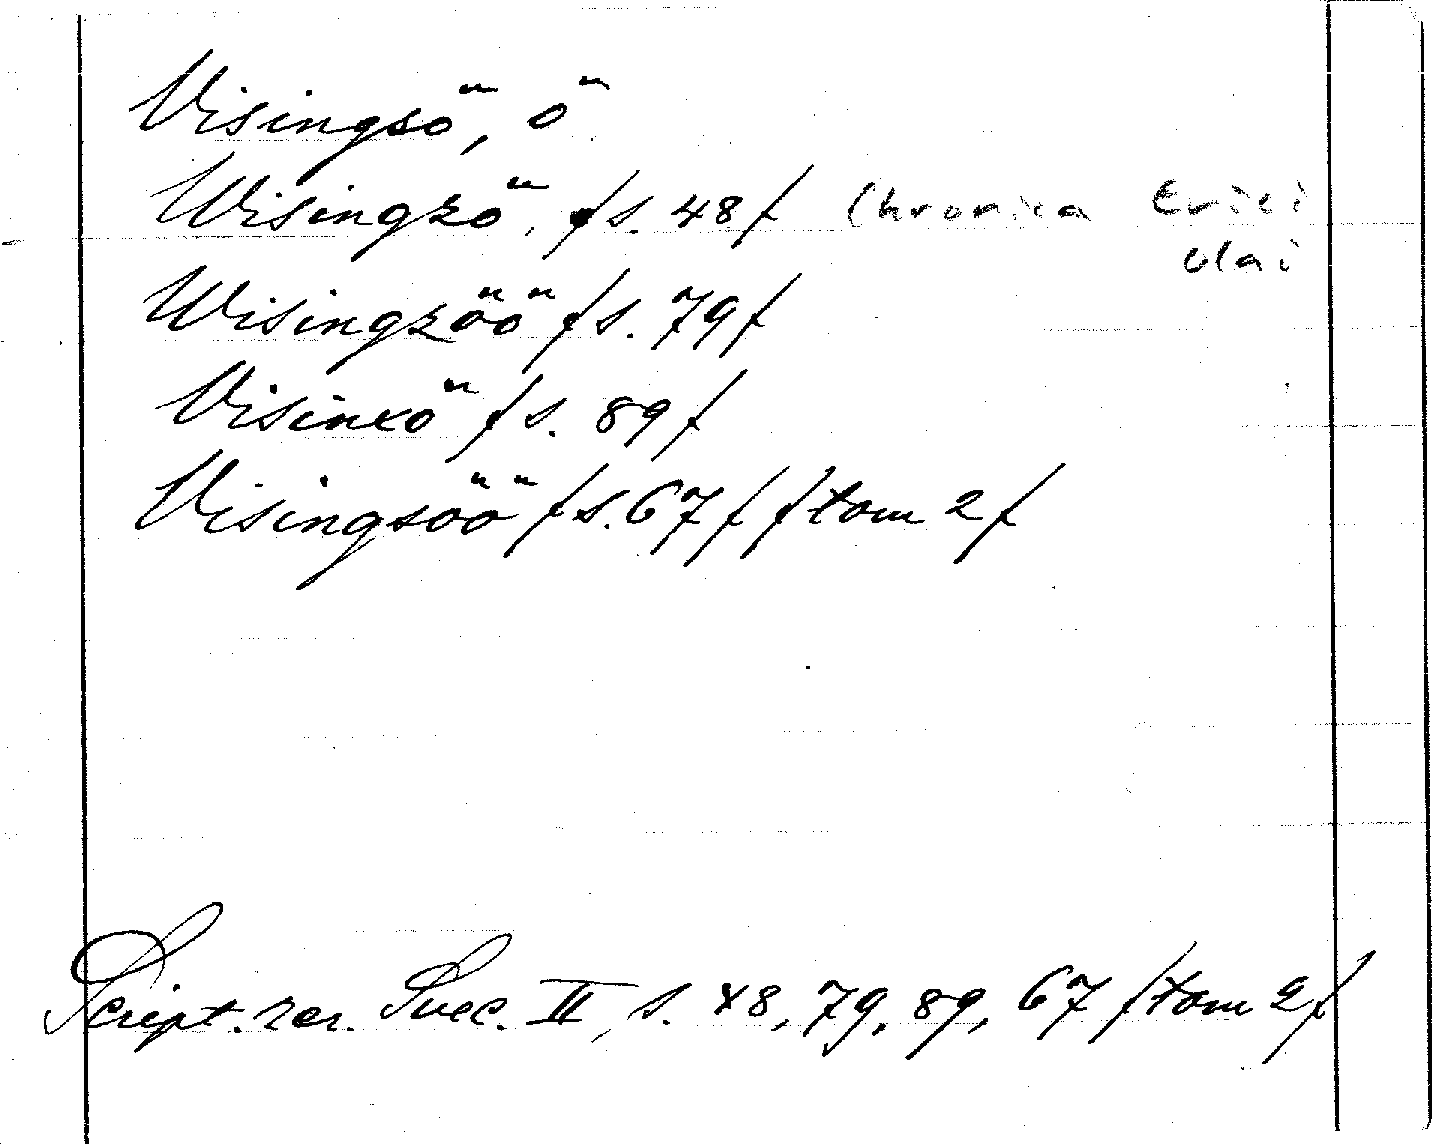 Visingsö, ö
Wisingzö, /s. 48/ Chronica Erici
Olai
Wisingzöö /s. 79/
Visinxö /s. 89/
Visingsöö /s. 67/ /tom 2/
Script. rer. Svec. II, s. 48, 79, 89, 67 /tom 2/